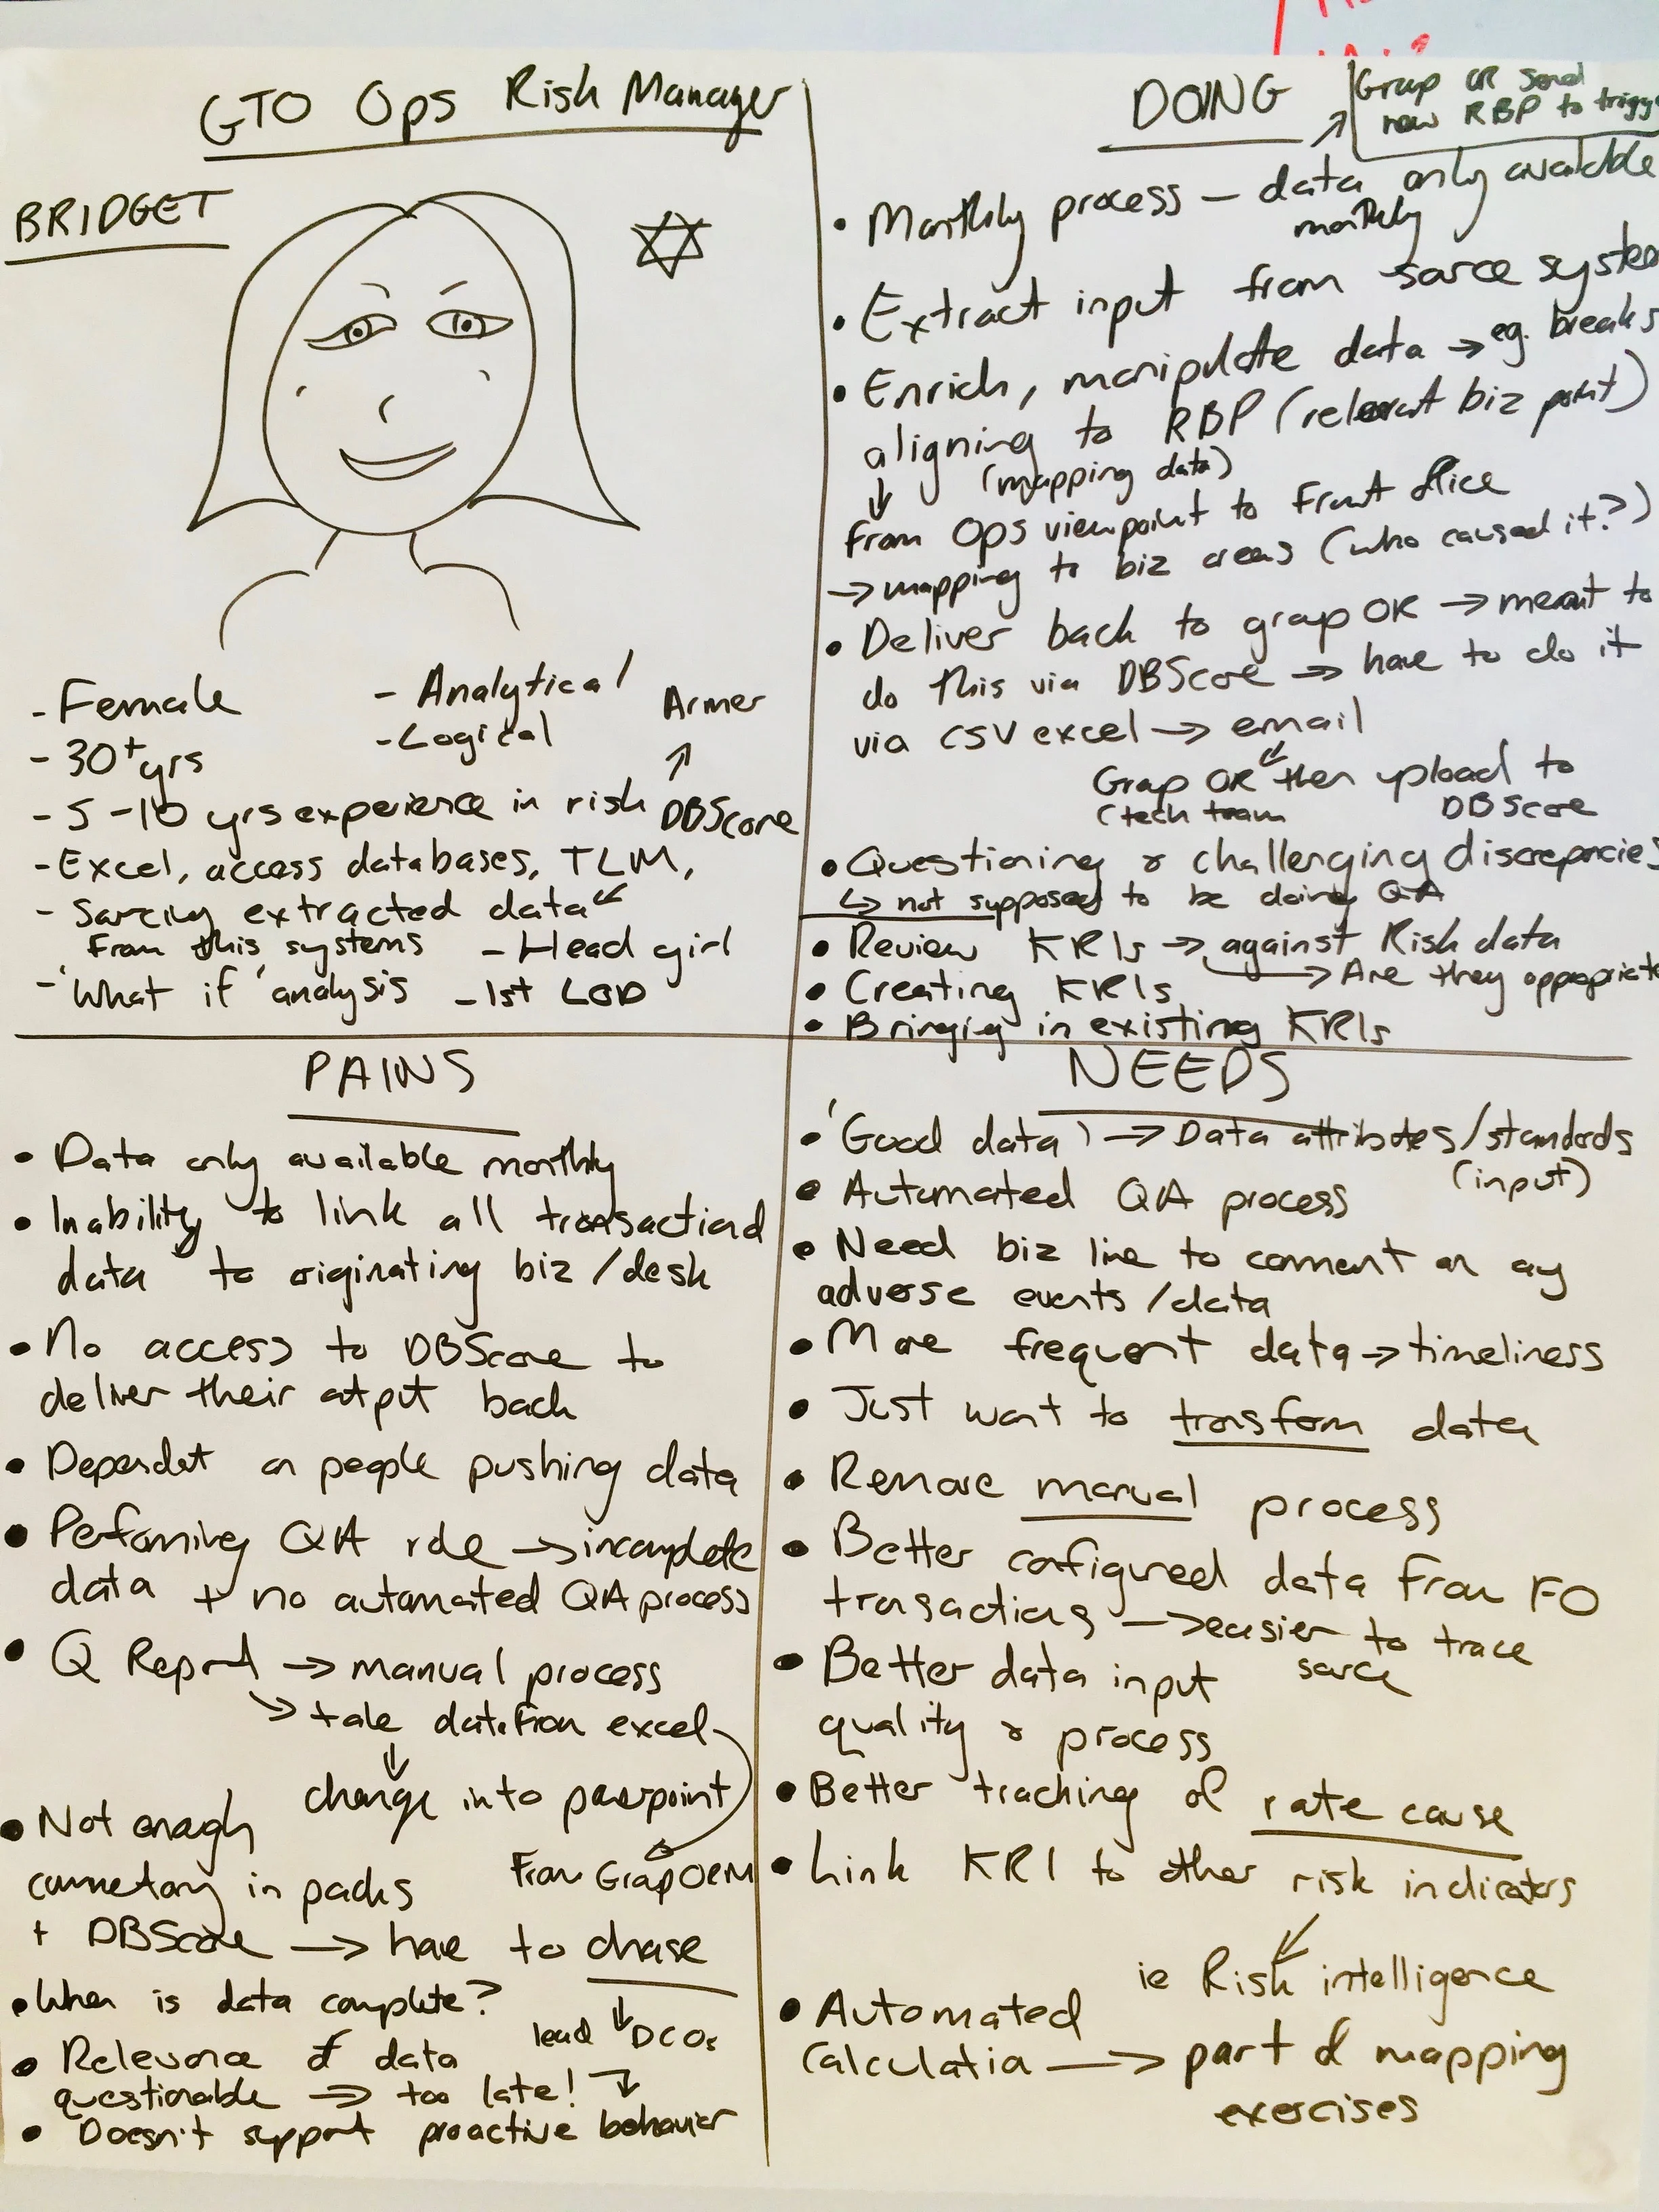 GTO Ops Risk Manager
BRIDGET
- Female
- 30+ yrs
- 5-10 yrs experience in risk
- Excel, access databases, TLM,
- Sourcing extracted data
from this systems
- 'What if' analysis
- Analytical
- Logical
Armer
DBScore
- Head girl
- 1st LOD
DOING
Group OR send
new RBP to
• Monthly process – data only available
monthly
• Extract input from source
• Enrich, manipulate data → eg. breaks
aligning to RBP (relevant biz point)
(mapping data)
↓
from Ops viewpoint to Front Office
→ mapping to biz areas (who caused it?)
• Deliver back to group OR → meant to
do this via DBScore → have to do it
via CSV excel → email
Group OR then upload to
(tech team DBScore
• Questioning & challenging discrepancies
↳ not supposed to be doing QA
• Review KRIs → against Risk data
→ Are they appropriate
• Creating KRIs
• Bringing in existing KRIs
PAINS
• Data only available monthly
• Inability to link all transactional
data to originating biz/desk
• No access to DBScore to
deliver their output back
• Dependent on people pushing data
• Performing QA role → incomplete
data + no automated QA process
• Q Report → manual process
↘ take data from excel
↓
change into powerpoint
From Group ORM
• Not enough
commentary in packs
+ DBScore → have to chase
↓
lead DCOs
• When is data complete?
• Relevance of data
questionable → too late!
• Doesn't support proactive behavior
NEEDS
• 'Good data' → Data attributes/standards
(input)
• Automated QA process
• Need biz line to comment on any
adverse events/data
• More frequent data → timeliness
• Just want to transform data
• Remove manual process
• Better configured data from FO
transactions → easier to trace
source
• Better data input
quality & process
• Better tracking of rate cause
• Link KRI to other risk indicators
ie Risk intelligence
• Automated
calculation → part of mapping
exercises